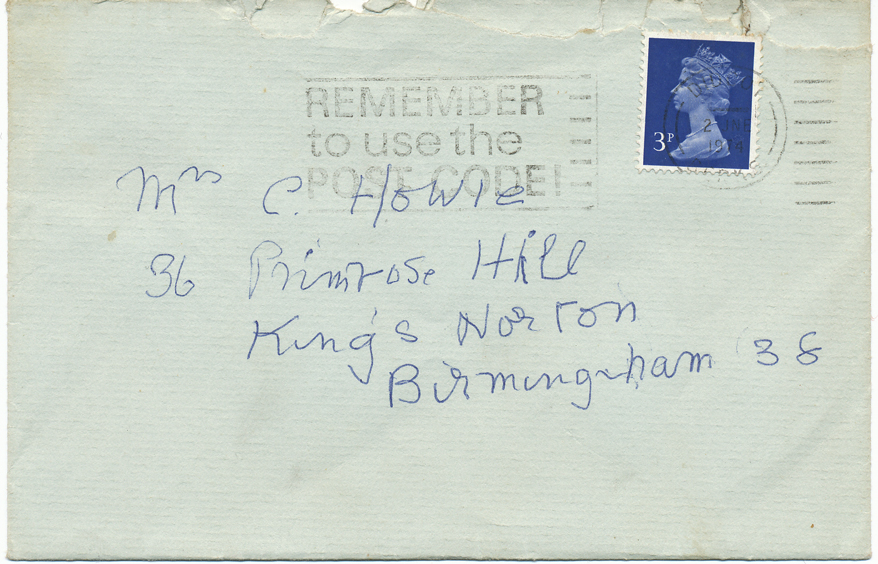 REMEMBER
to use the
POST CODE!
3P
1974
Mrs C. Howie
36 Primrose Hill
King's Norton
Birmingham 38